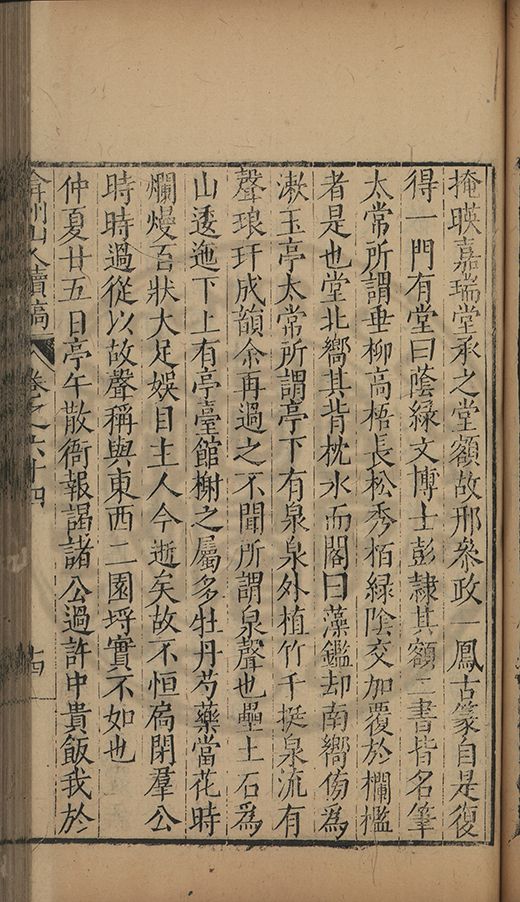 掩暎嘉瑞堂承之堂額故邢參政一鳳古篆自是復
得一門有堂曰蔭綠文博士彭隸其額二書皆名筆
太常所謂垂柳高梧長松秀栢緑陰交加覆於欄檻
者是也堂北嚮其背枕水而閣曰藻鑑却南嚮俯為
漱玉亭太常所謂亭下有泉泉外植竹千挺泉流有
聲琅玕成韻余再過之不聞所謂泉聲也壘土石為
山逶迤下上有亭臺館榭之屬多牡丹芍藥當花時
爛熳吾狀大足娛目主人今逝矣故不恒扄閉羣公
時時過從以故聲稱與東西二園埒實不如也
仲夏廿五日亭午散衙報謁諸公過許中貴飯我於
弇州山人續稿
卷之六十四
十四